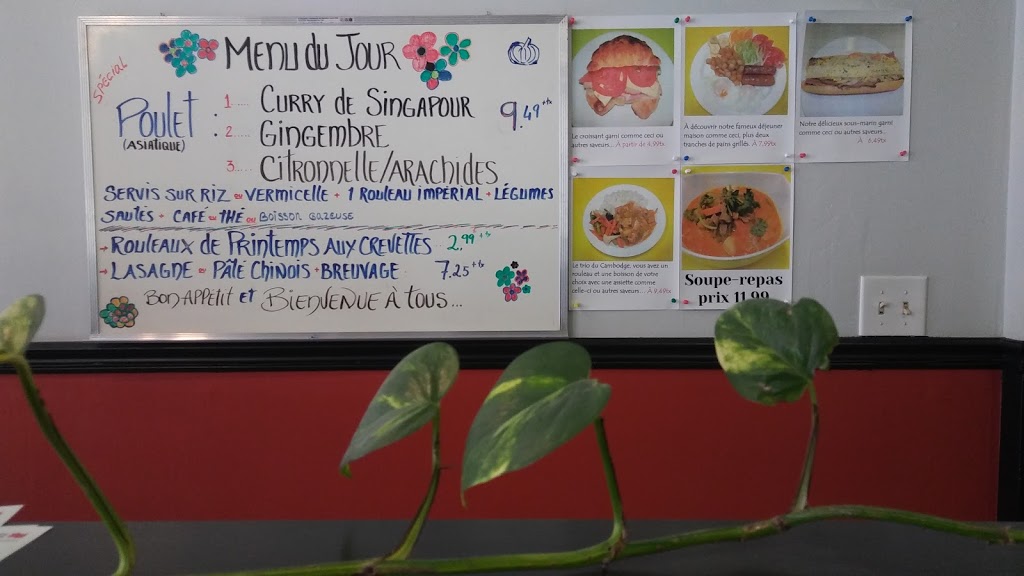 MENU DU JOUR
SPÉCIAL
POULET
(ASIATIQUE)
:
1.... CURRY de SINGAPOUR
2.... GINGEMBRE
3... CITRONNELLE/ARACHIDES
9.49+tx
SERVIS SUR RIZ ou VERMICELLE + 1 ROULEAU IMPÉRIAL + LÉGUMES
SAUTÉS + CAFÉ ou THÉ ou BOISSON GAZEUSE
→ ROULEAUX de PRINTEMPS AUX CREVETTES.. 2.99+tx
→ LASAGNE ou PÂTÉ CHINOIS + BREUVAGE 7.25+tx
BON APPÉTIT ET BIENVENUE À TOUS...
Le croissant garni comme ceci ou
autres saveurs... À partir de 4.99tx
À découvrir notre fameux déjeuner
maison comme ceci, plus deux
tranches de pains grillés. À 7.99tx
Notre délicieux sous-marin garni
comme ceci ou autres saveurs...
À 6.49tx
Le trio du Cambodge, vous avez un
rouleau et une boisson de votre
choix avec une assiette comme
celle-ci ou autres saveurs...
Soupe-repas
prix 11.99